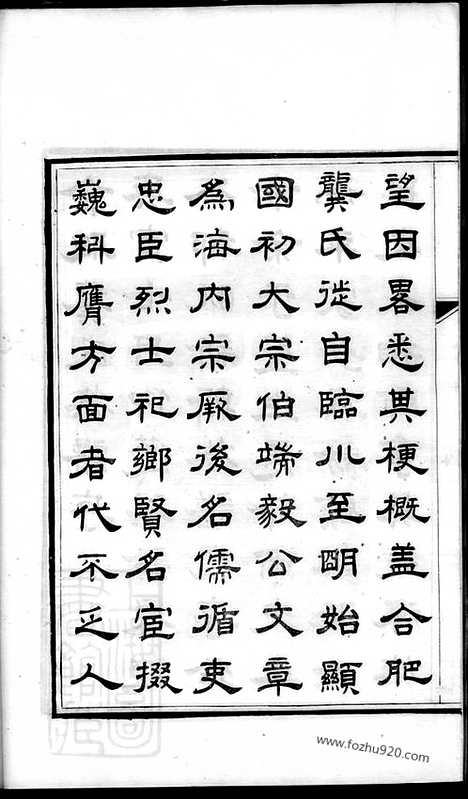 望因畧悉其梗概盖合肥
龔氏從自臨川至明始顯
國初大宗伯端毅公文章
為海內宗厥後名儒循吏
忠臣烈士祀鄉賢名宦掇
巍科膺方面者代不乏人
www.fozhu920.com